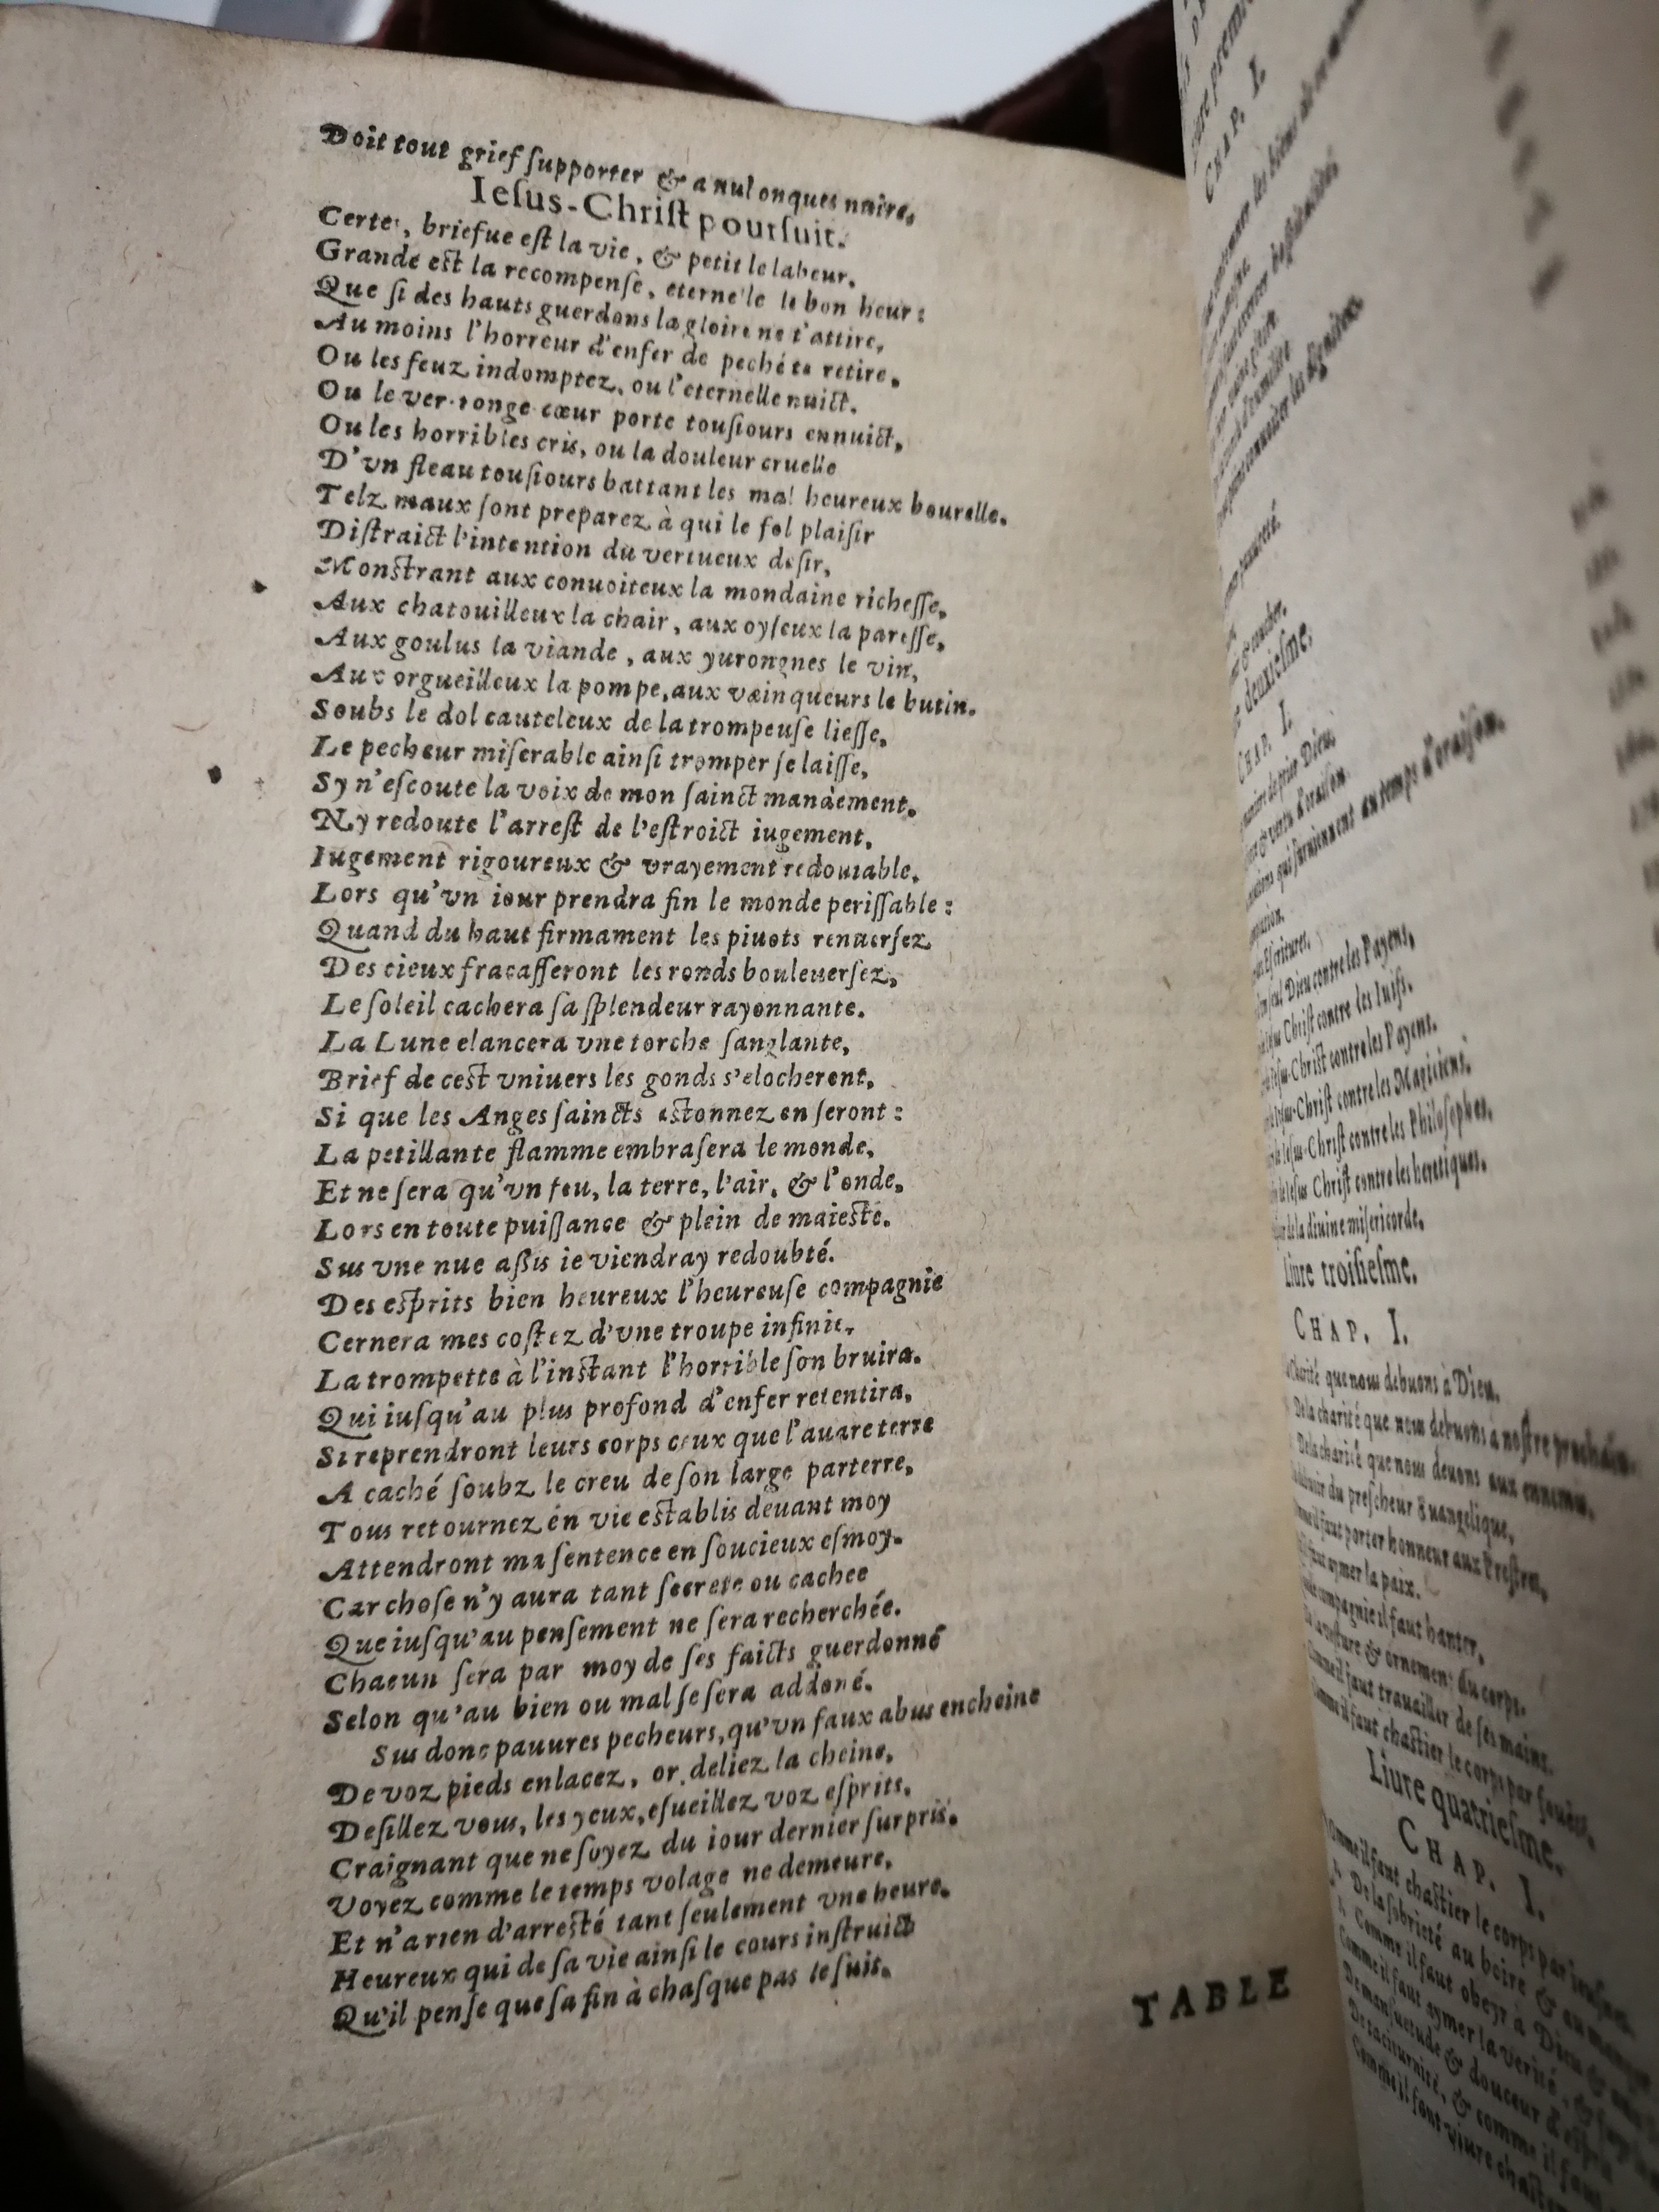 Doit tout grief ſupporter & a nul onques nuire,
Ieſus-Chriſt pourſuit.
Certes, briefue eſt la vie, & petit le labeur,
Grande eſt la recompenſe, eternelle le bon heur:
Que ſi des hauts guerdons la gloire ne t'attire,
Au moins l'horreur d'enfer de peché te retire,
Ou les feuz indomptez, ou l'eternelle nuict,
Ou le ver-ronge-cœur porte touſiours ennuict,
Ou les horribles cris, ou la douleur cruelle
D'vn fleau touſiours battant les mal heureux bourelle.
Telz maux ſont preparez à qui le fol plaiſir
Diſtraict l'intention du vertueux deſir,
Monſtrant aux conuoiteux la mondaine richeſſe,
Aux chatouilleux la chair, aux oyſeux la pareſſe,
Aux goulus la viande, aux yurongnes le vin,
Aux orgueilleux la pompe, aux vainqueurs le butin.
Soubs le dol cauteleux de la trompeuſe lieſſe,
Le pecheur miſerable ainſi tromper ſe laiſſe,
Sy n'eſcoute la voix de mon ſainct mandement.
Ny redoute l'arreſt de l'eſtroict iugement,
Iugement rigoureux & vrayement redoutable,
Lors qu'vn iour prendra fin le monde periſſable:
Quand du haut firmament les piuots renuerſez
Des cieux fracaſſeront les ronds bouleuerſez,
Le ſoleil cachera ſa ſplendeur rayonnante.
La Lune elancera vne torche ſanglante,
Brief de ceſt vniuers les gonds s'elocheront,
Si que les Anges ſaincts eſtonnez en ſeront:
La petillante flamme embraſera le monde,
Et ne ſera qu'vn feu, la terre, l'air, & l'onde,
Lors en toute puiſſance & plein de maieſté.
Sus vne nue aßis ie viendray redoubté.
Des eſprits bien heureux l'heureuſe compagnie
Cernera mes coſtez d'vne troupe infinie,
La trompette à l'inſtant l'horrible ſon bruira.
Qui iuſqu'au plus profond d'enfer retentira,
Si reprendront leurs corps ceux que l'auare terre
A caché ſoubz le creu de ſon large parterre,
Tous retournez én vie eſtablis deuant moy
Attendront ma ſentence en ſoucieux eſmoy.
Car choſe n'y aura tant ſecrete ou cachee
Que iuſqu'au penſement ne ſera recherchée.
Chacun ſera par moy de ſes faicts guerdonné
Selon qu'au bien ou mal ſe ſera addoné.
Sus donc pauures pecheurs, qu'vn faux abus encheine
De voz pieds enlacez, or, deliez la cheine,
Deſillez vous, les yeux, eſueillez voz eſprits,
Craignant que ne ſoyez du iour dernier ſurpris.
Voyez comme le temps volage ne demeure,
Et n'a rien d'arreſté tant ſeulement vne heure.
Heureux qui de ſa vie ainſi le cours inſtruict
Qu'il penſe que ſa fin à chaſque pas le ſuit.
TABLE
CHAP. I.
deuxieſme,
CHAP. I.
au temps d'oraiſon.
Dieu contre les Payens,
Chriſt contre les Iuifs.
Ieſus-Chriſt contre les Payens.
Ieſus-Chriſt contre les Magiciens.
Ieſus-Chriſt contre les Philoſophes,
Ieſus Chriſt contre les heretiques.
de la diuine miſericorde,
Liure troiſieſme.
CHAP. I.
Charité que nous debuons à Dieu.
De la charité que nous debuons a noſtre prochain.
De la charité que nous deuons aux ennemis.
du preſcheur Euangelique,
il faut porter honneur aux Preſtres,
aymer la paix.
compagnie il faut hanter,
& ornement du corps.
Comme il faut trauailler de ſes mains.
Comme il faut chaſtier le corps par
Liure quatrieſme.
CHAP. I.
Comme il faut chaſtier le corps par ieuſnes.
De la ſobrieté au boire & au manger
Comme il faut obeyr à Dieu &
Comme il faut aymer la verité, &
De manſuetude & douceur d'eſprit
De taciturnité, & comme il faut
Comme il faut viure